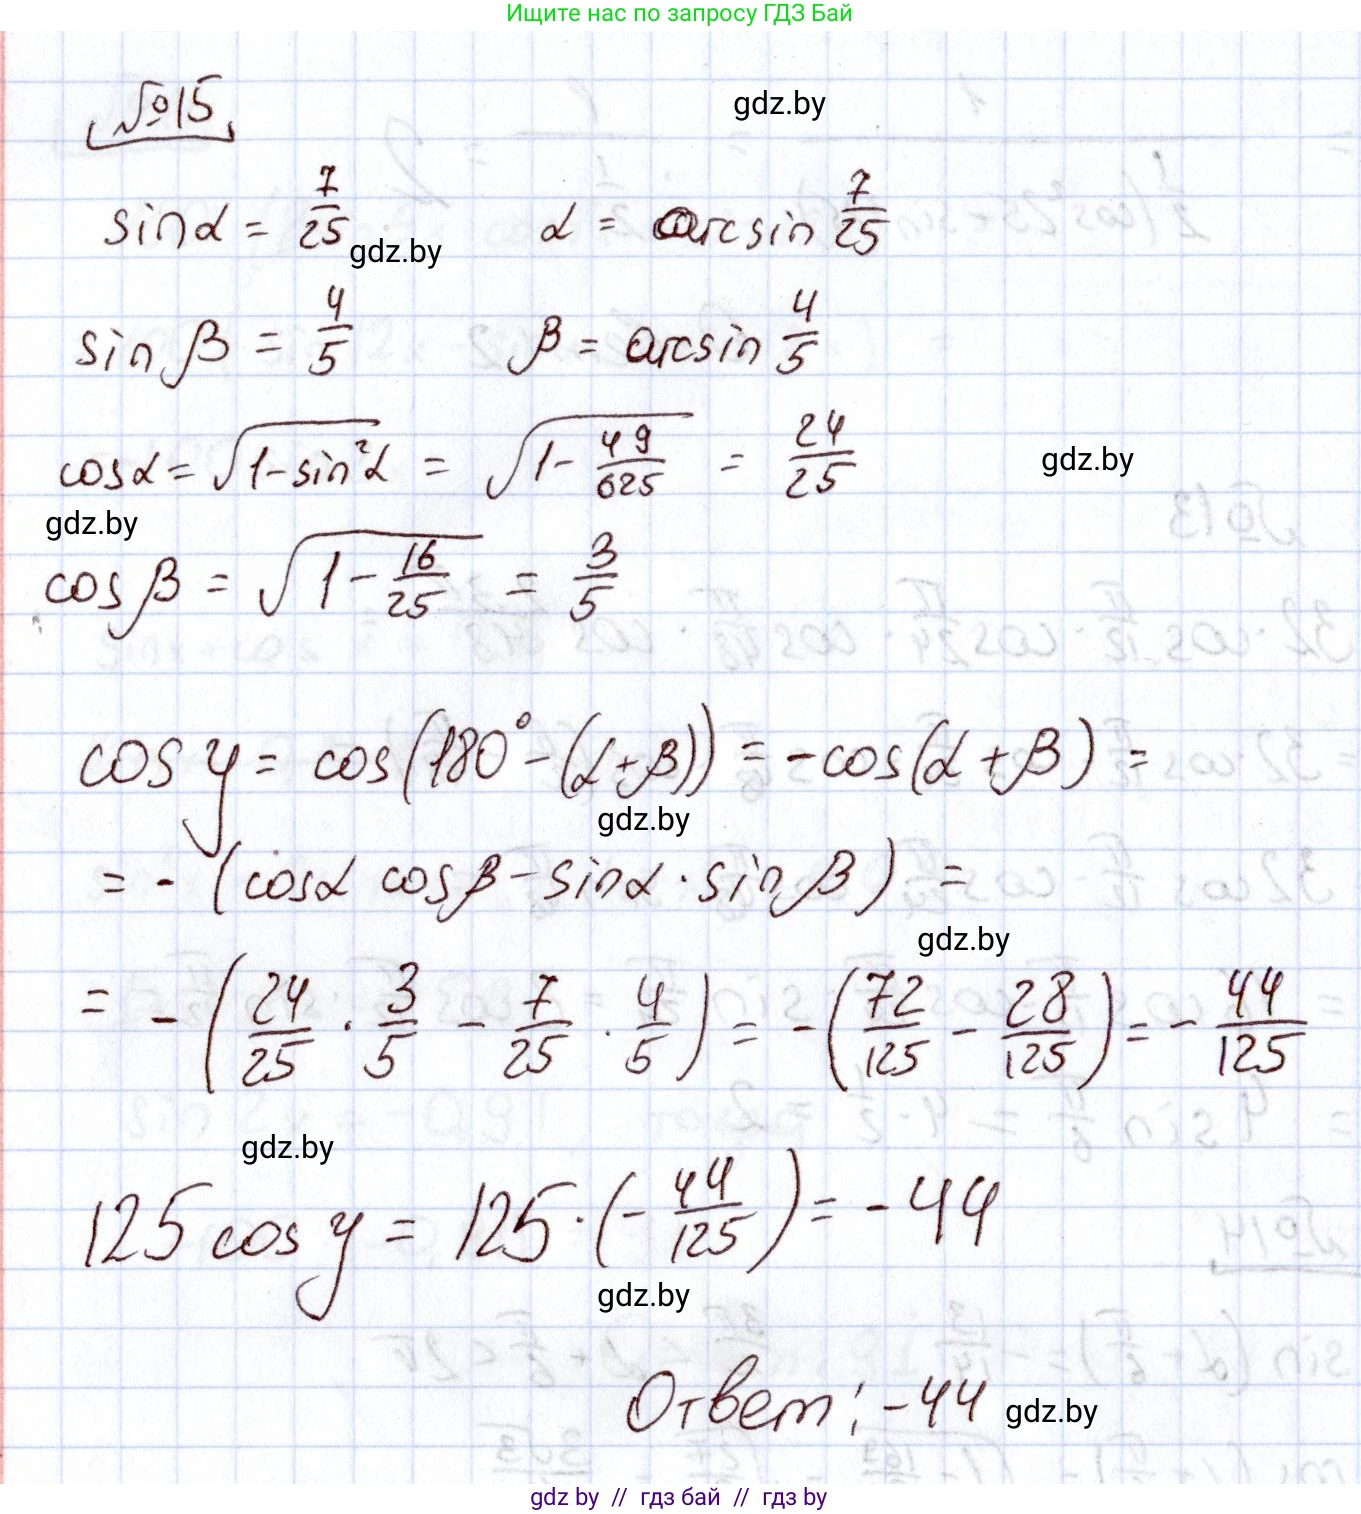 Ищите нас по запросу ГДЗ Бай
№15
gdz.by
sinα = 7/25 α = arcsin 7/25
gdz.by
sinβ = 4/5 β = arcsin 4/5
cosα = √(1-sin²α) = √(1 - 49/625) = 24/25
gdz.by
gdz.by
cosβ = √(1 - 16/25) = 3/5
cos y = cos(180° - (α+β)) = -cos(α+β) =
gdz.by
= - (cosα cosβ - sinα · sinβ) =
gdz.by
= - (24/25 · 3/5 - 7/25 · 4/5) = - (72/125 - 28/125) = - 44/125
gdz.by
125 cos y = 125 · (- 44/125) = - 44
gdz.by
Ответ: -44
gdz.by
gdz by // гдз бай // gdz by